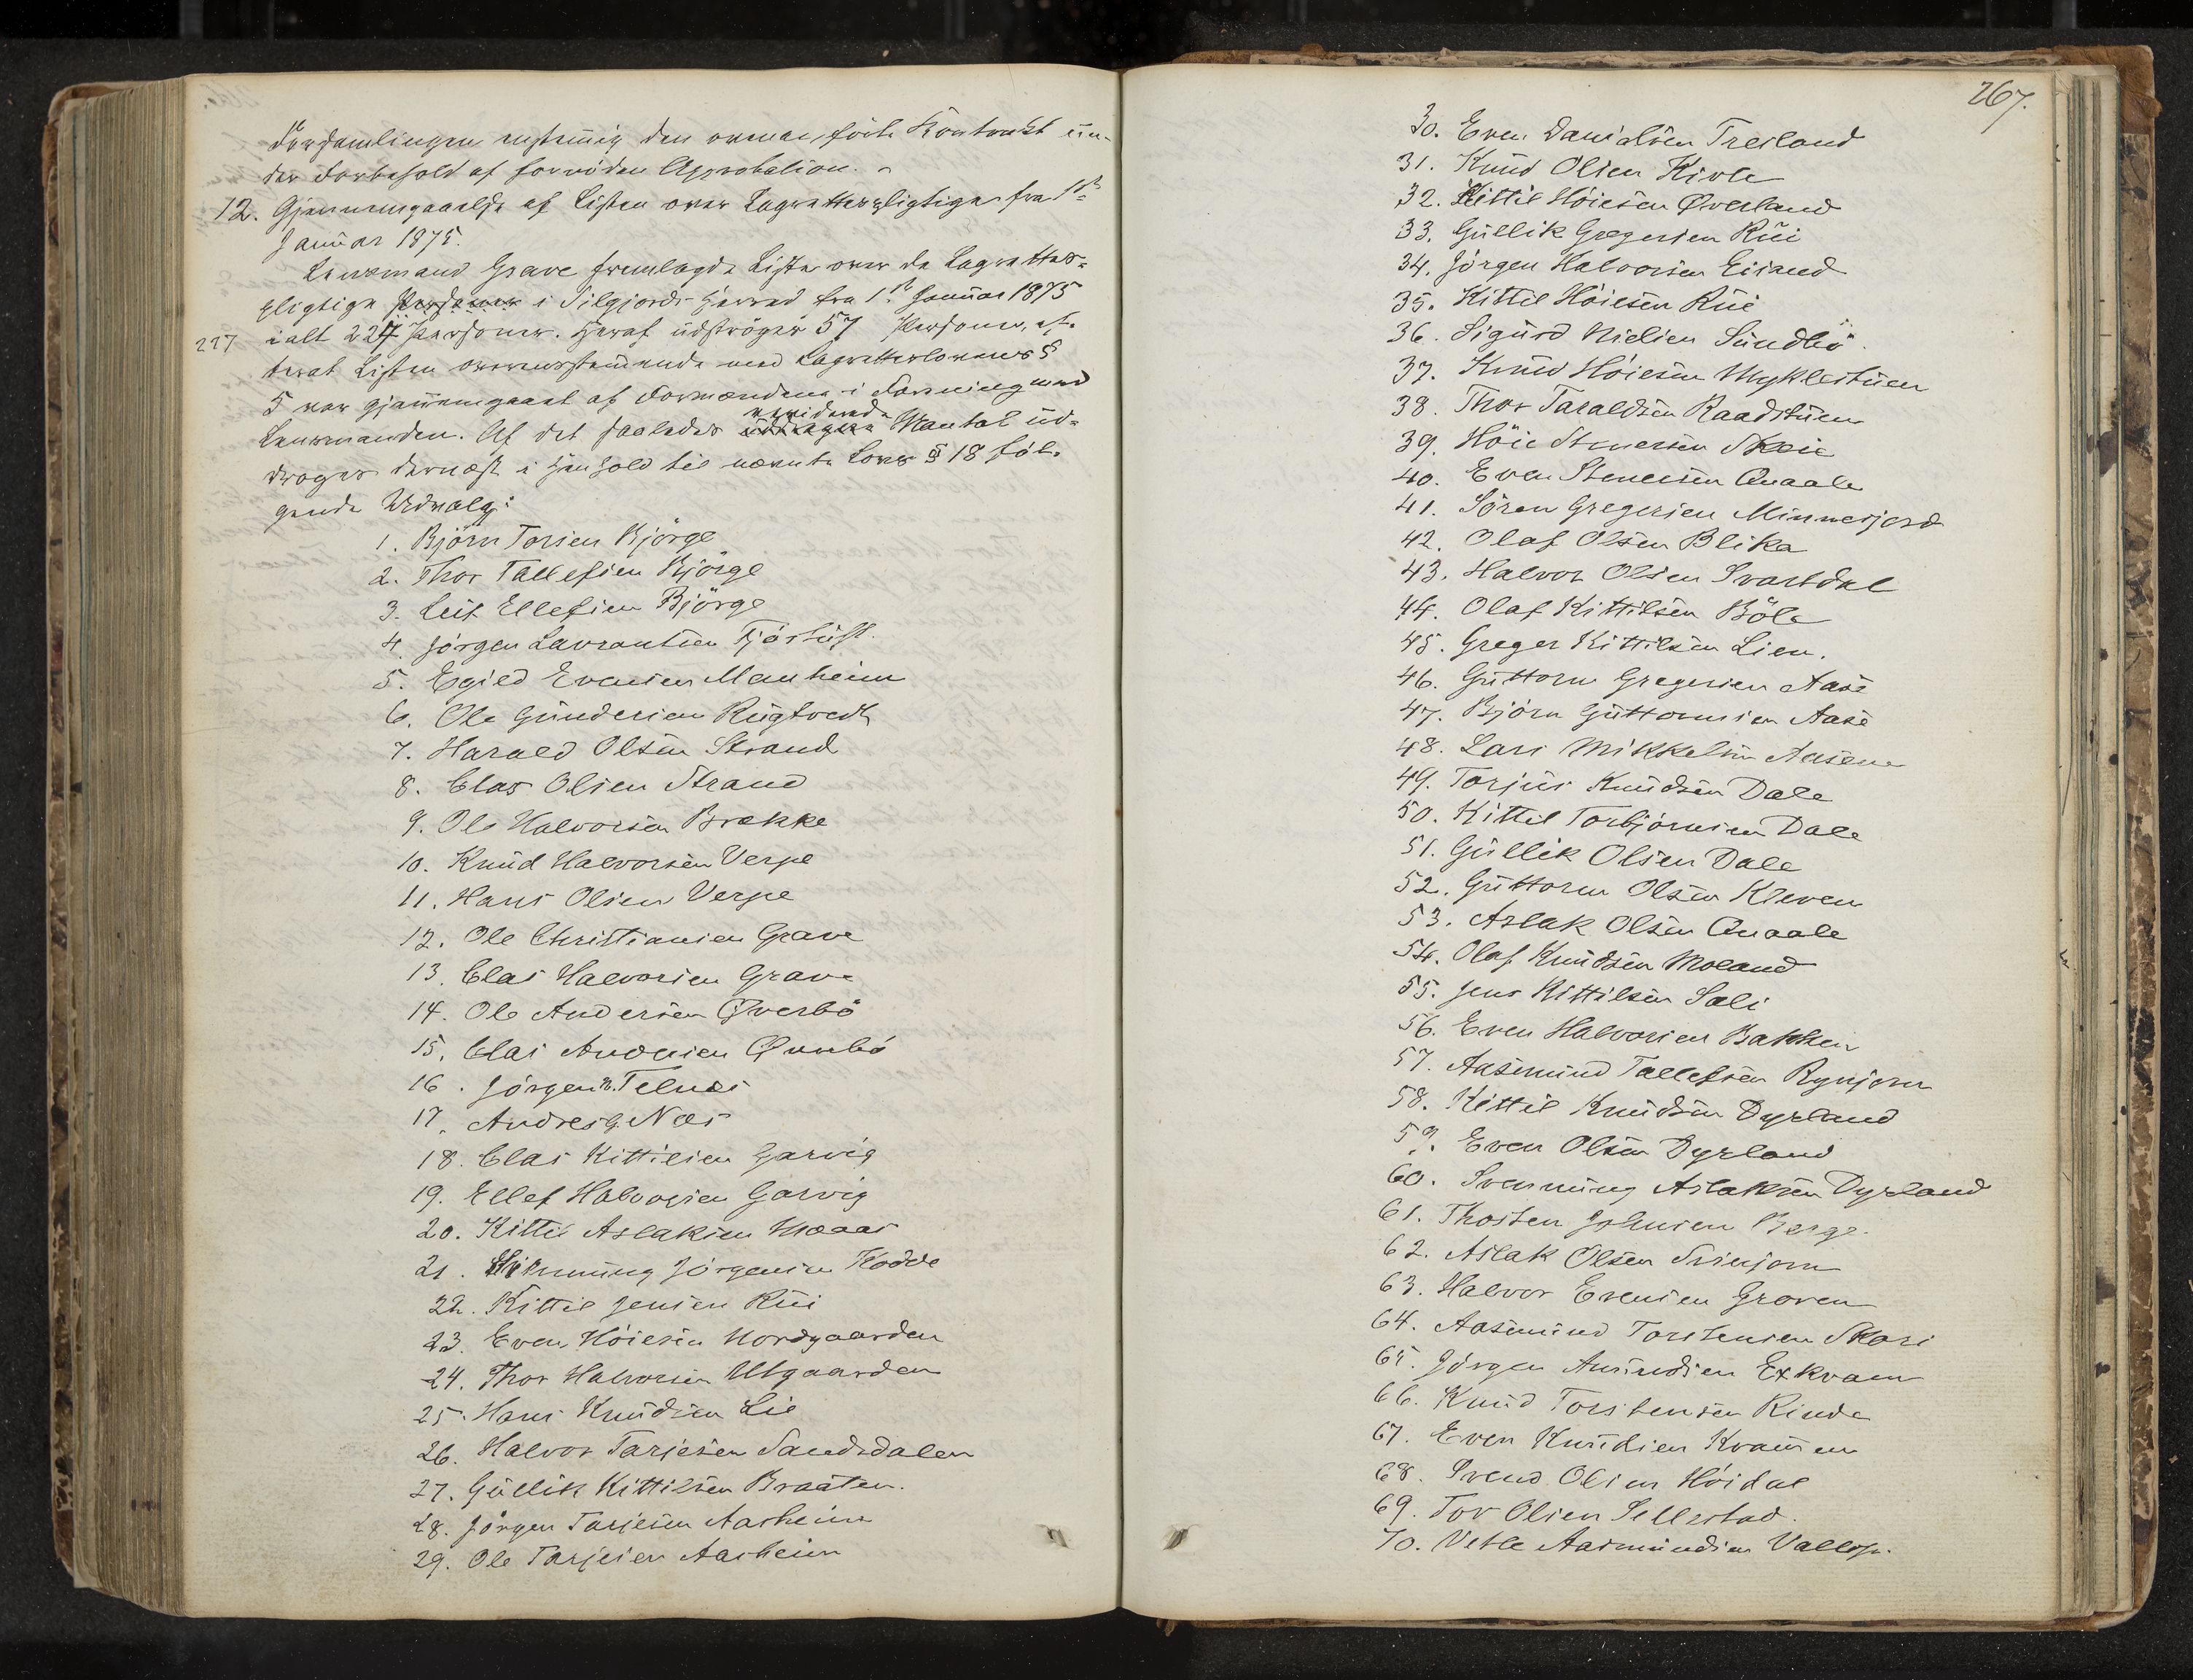 Forsamlingen enstemig den ovenanførte Kontrakt un-
der Forbehold af fornøden Approbation.
12. Gjennemgaaelse af Listen over Lagretterpligtige fra 1ste
Januar 1875.
Lensmand Grave fremlagde Liste over de Lagretter-
pligtige Personer i Silgjords Herred fra 1ste Januar 1875
227 ialt 227 Personer. Heraf udstrøges 57 Personer, ef-
terat Listen overensstemmende med Lagretterlovens §
5 var gjennemgaaet af Formændene i Forening med
reviderede
Lensmanden. Af det saaledes uddragne Mantal ud-
droges dernæst i Henhold til nævnte Lovs § 18 føl-
gende Udvalg:
1. Bjørn Torsen Bjørge
2. Thor Tallefsen Bjørge
3. Leif Ellefsen Bjørge
4. Jørgen Lavrantsen Tjørtuft.
5. Egild Evensen Manheim
6. Ole Gundersen Rugtvedt
7. Harald Olsen Strand
8. Clas Olsen Strand
9. Ole Halvorsen Brække
10. Knud Halvorsen Verpe
11. Hans Olsen Verpe
12. Ole Christiansen Grave
13. Clas Halvorsen Grave
14. Ole Andersen Øverbø
15. Clas Andersen Øverbø
16. Jørgen N. Telnæs
17. Andres G. Næs
18. Clas Kittilsen Garvig
19. Ellef Halvorsen Garvig
20. Kittil Aslaksen Moaas
21. Svennung Jørgensen Flodde
22. Kittil Jensen Rui
23. Even Høiesen Nordgaarden
24. Thor Halvorsen Utgaarden
25. Hans Knudsen Lie
26. Halvor Tarjesen Sandsdalen
27. Gullik Kittilsen Braaten.
28. Jørgen Tarjesen Aasheim
29. Ole Tarjesen Aasheim
267.
30. Even Danielsen Treiland
31. Knud Olsen Kivle
32. Kittil Høiesen Øverland
33. Gullik Gregersen Rui
34. Jørgen Halvorsen Eisand
35. Kittil Høiesen Rui
36. Sigurd Nielsen Sundbø.
37. Knud Høiesen Mykleituen
38. Thor Taraldsen Raadstuen
39. Høie Stenersen Skeie
40. Even Stenersen Qvaale
41. Søren Gregersen Minnesjord
42. Olaf Olsen Blika
43. Halvor Olsen Svartdal
44. Olaf Kittilsen Bøle
45. Greger Kittilsen Lien.
46. Guttorm Gregersen Aase
47. Bjørn Guttormsen Aase
48. Lars Mikkelsen Aasene
49. Torjus Knudsen Dale
50. Kittil Torbjørnsen Dale
51. Gullik Olsen Dale
52. Guttorm Olsen Kleven
53. Aslak Olsen Qvaale
54. Olaf Knudsen Moland
55. Jens Kittilsen Sali
56. Even Halvorsen Bakken
57. Aasmund Tallefsen Rynjorn
58. Kittil Knudsen Dyrland
59. Even Olsen Dyrland
60. Svennung Aslaksen Dyrland
61. Thosten Johnsen Berge.
62. Aslak Olsen Svinjorn
63. Halvor Evensen Groven
64. Aasmund Torstensen Skori
65. Jørgen Amundsen Exkvam
66. Knud Torstensen Rinde
67. Even Knudsen Kvammen
68. Svend Olsen Høidal
69. Tov Olsen Sellestad.
70. Vetle Aasmundsen